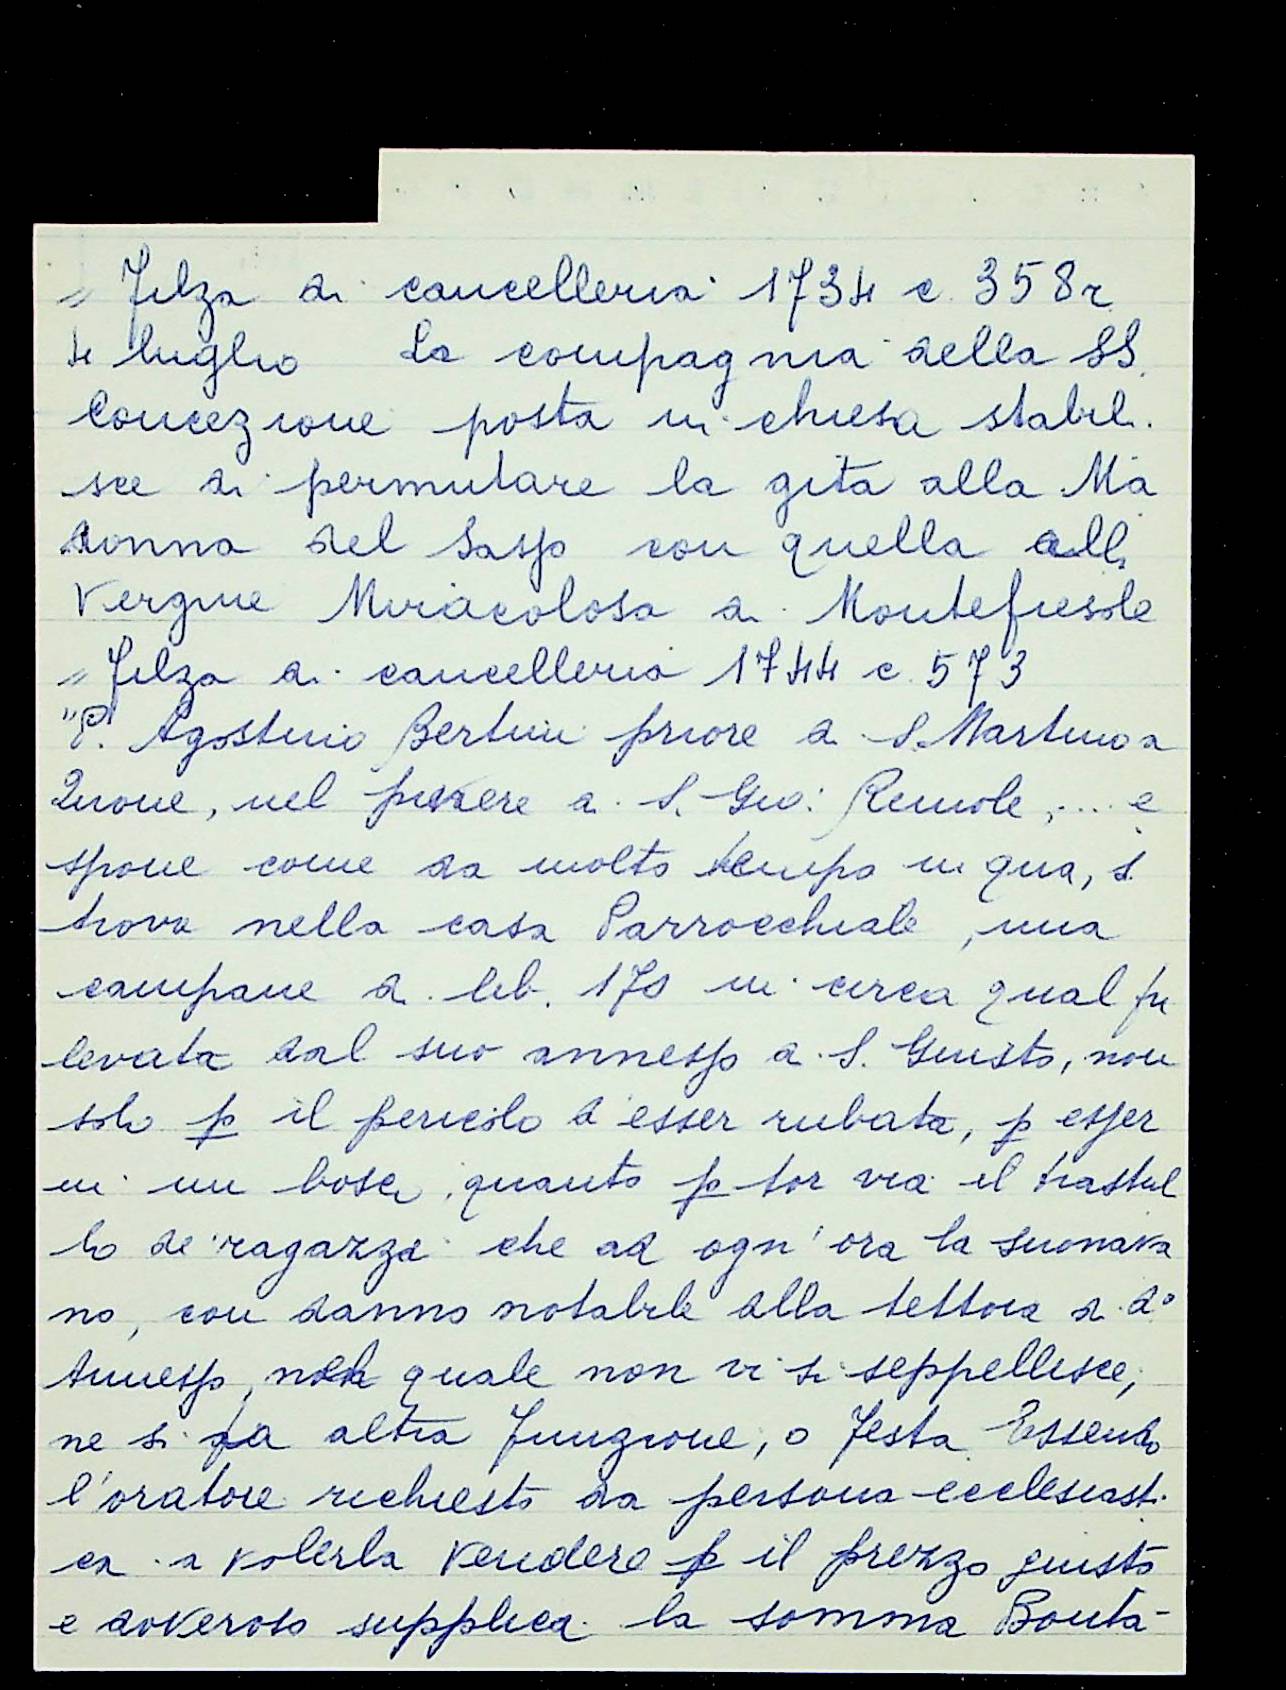 " Filza di cancelleria 1734 c. 358r
4 luglio La compagnia della SS.
Concezione posta in chiesa stabili.
sce di permutare la gita alla Ma
donna del Sasso con quella alla
Vergine Miracolosa di Montefiesole
" Filza di cancelleria 1744 c. 573
"P. Agostino Bertini priore di S. Martino a
Quone, nel piviere di S. Gio: Remole, .... e
spone come da molto tempo in qua, si
trova nella casa Parrocchiale, una
campane di lib. 170 in circa qual fu
levata dal suo annesso di S. Giusto, non
solo p il pericolo d'esser rubata, p esser
in un bosco, quanto p tor via il trastul
lo de' ragazzi che ad ogn'ora la suonava
no, con danno notabile alla tettoia di do
Annesso, nella quale non vi si seppellisce,
ne si fa altra Funzione, o Festa Essendo
l'oratore richiesto da persona ecclesiasti.
ca a volerla vendere p il prezzo giusto
e doveroso supplica la somma Bontà-